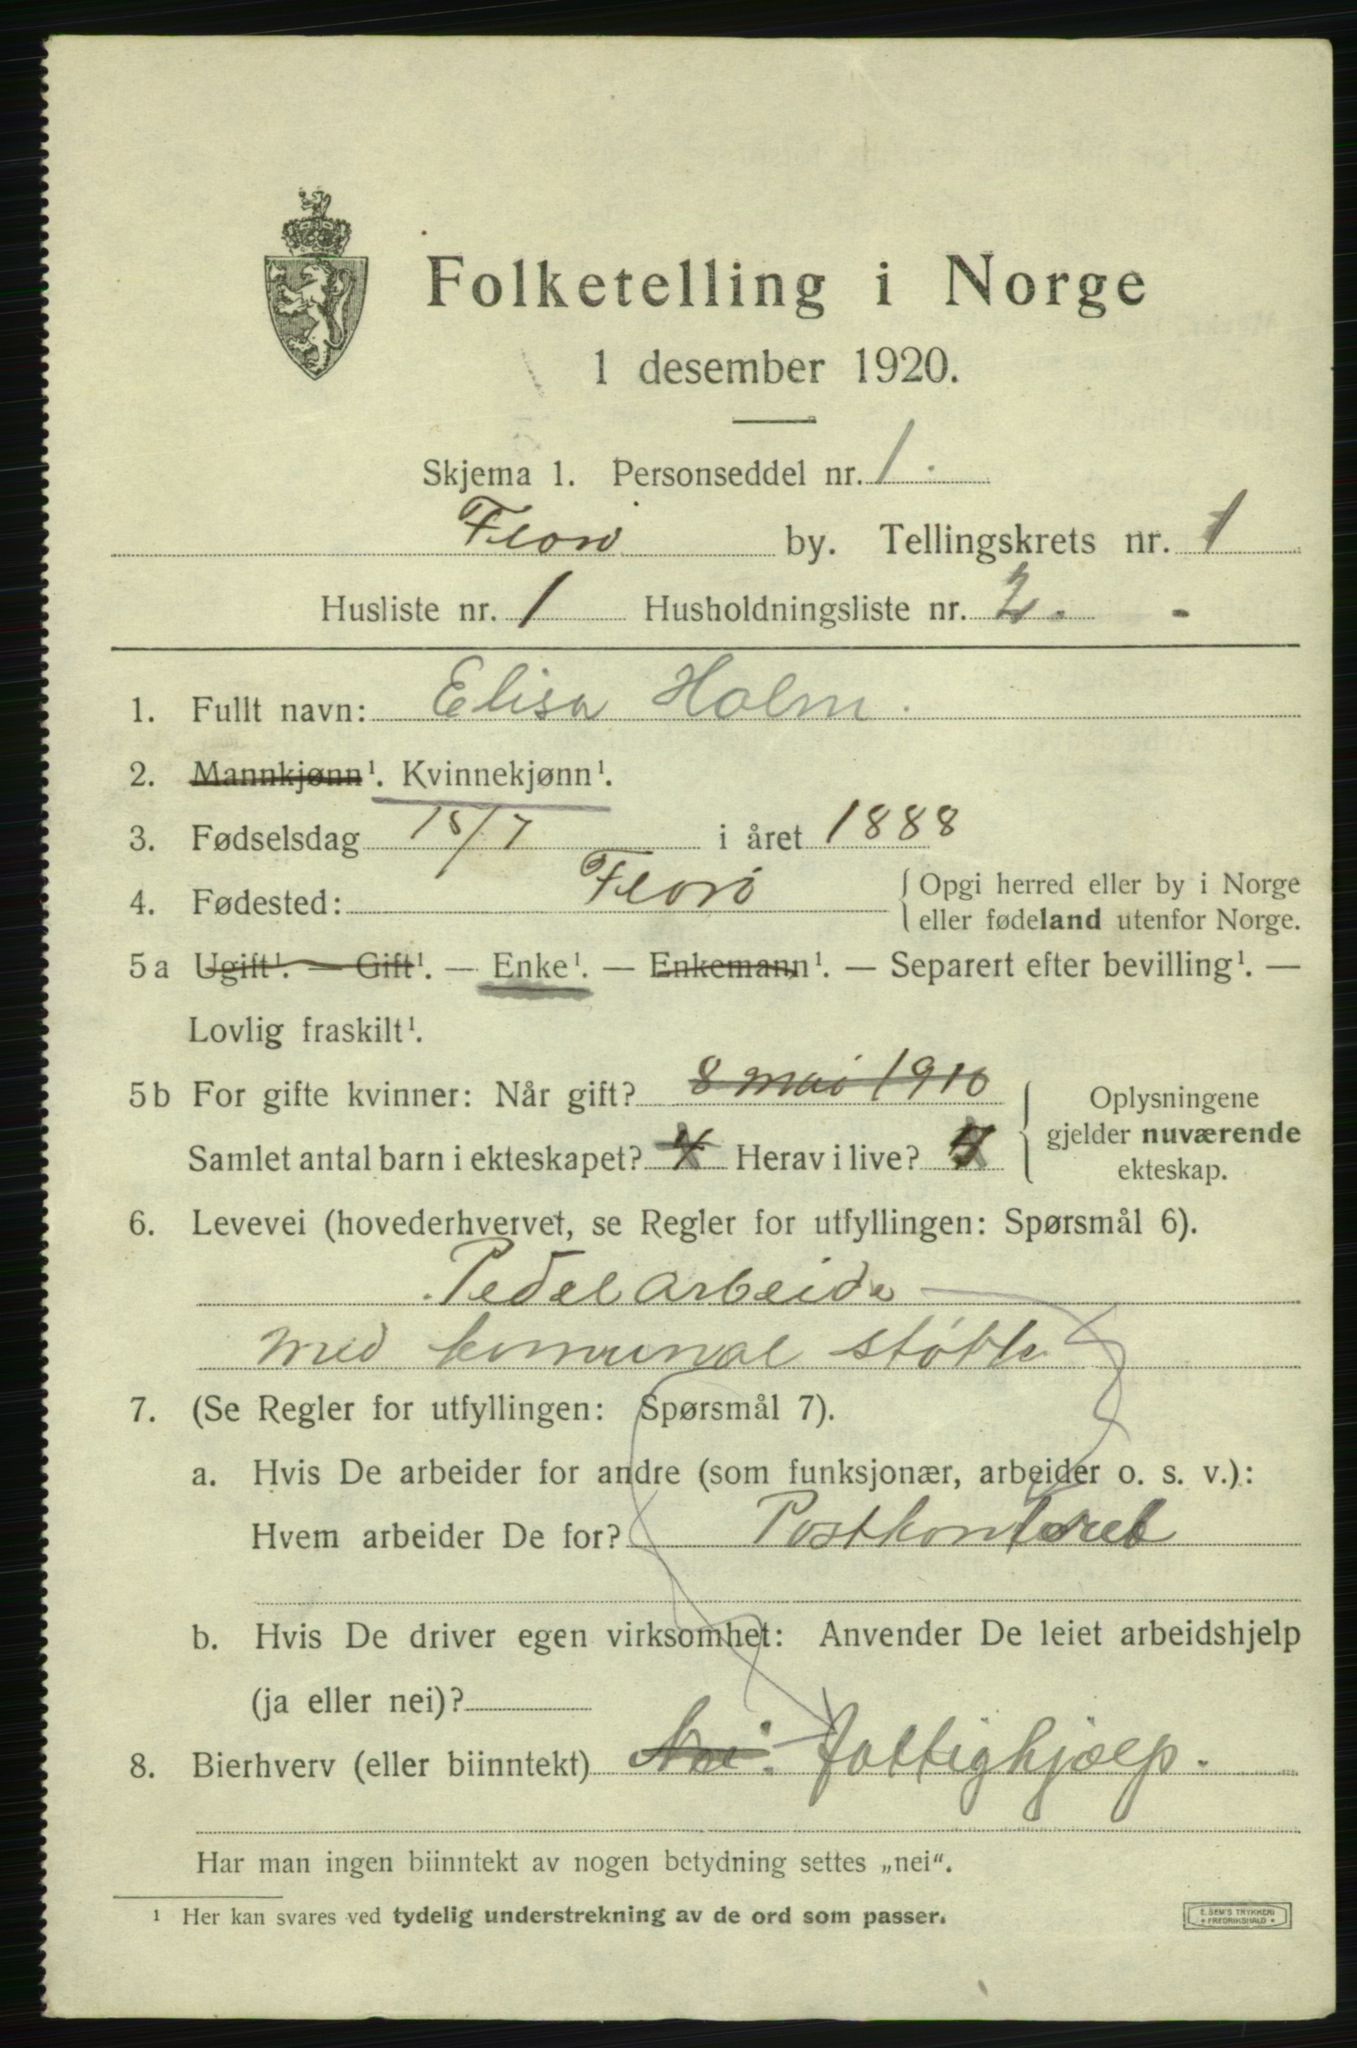 Folketelling i Norge
1 desember 1920.
Skjema 1. Personseddel nr. 1.
Florø by. Tellingskrets nr. 1
Husliste nr. 1 Husholdningsliste nr. 2.
1. Fullt navn: Elisa Holm.
2. Mannkjønn¹. Kvinnekjønn¹.
3. Fødselsdag 15/7 i året 1888
4. Fødested: Florø {Opgi herred eller by i Norge
eller fødeland utenfor Norge.
5a Ugift¹. — Gift¹. — Enke¹. — Enkemann¹. — Separert efter bevilling¹. —
Lovlig fraskilt¹.
5b For gifte kvinner: Når gift? 8 mai 1910 } Oplysningene
gjelder nuværende
ekteskap.
Samlet antal barn i ekteskapet? 4 Herav i live?
6. Levevei (hovederhvervet, se Regler for utfyllingen: Spørsmål 6).
Pedelarbeide
med komunal støtte
7. (Se Regler for utfyllingen: Spørsmål 7).
a. Hvis De arbeider for andre (som funksjonær, arbeider o. s. v.):
Hvem arbeider De for? Postkontoret
b. Hvis De driver egen virksomhet: Anvender De leiet arbeidshjelp
(ja eller nei)?
8. Bierhverv (eller biinntekt) Nei. fattighjælp.
Har man ingen biinntekt av nogen betydning settes „nei“.
¹ Her kan svares ved tydelig understrekning av de ord som passer.
E. SEM'S TRYKKERI
FREDRIKSHALD